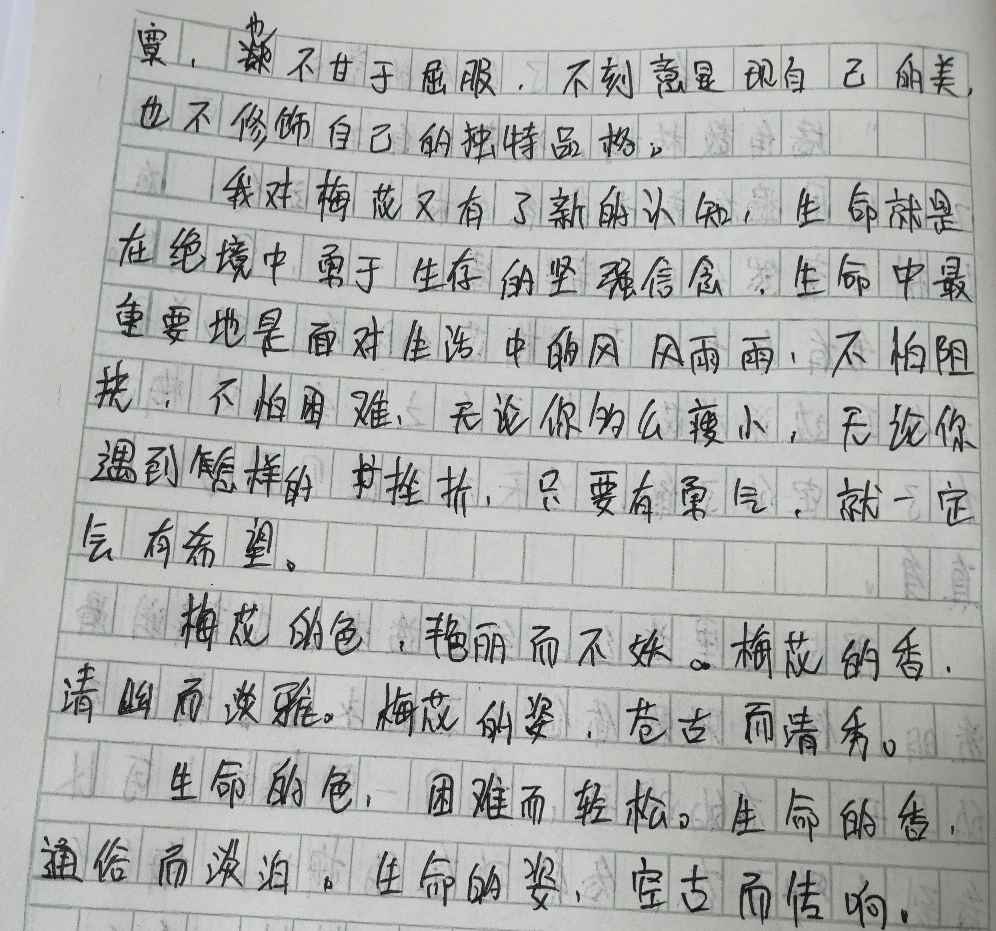 覃，也不甘于屈服，不刻意显现自己的美，
也不修饰自己的独特品格。
我对梅花又有了新的认知，生命就是
在绝境中勇于生存的坚强信念，生命中最
重要地是面对生活中的风风雨雨，不怕阻
扰，不怕困难，无论你多么瘦小，无论你
遇到怎样的挫折，只要有勇气，就一定
会有希望。
梅花的色，艳丽而不妖。梅花的香，
清幽而淡雅。梅花的姿，苍古而清秀。
生命的色，困难而轻松。生命的香，
通俗而淡泊。生命的姿，空古而传响。